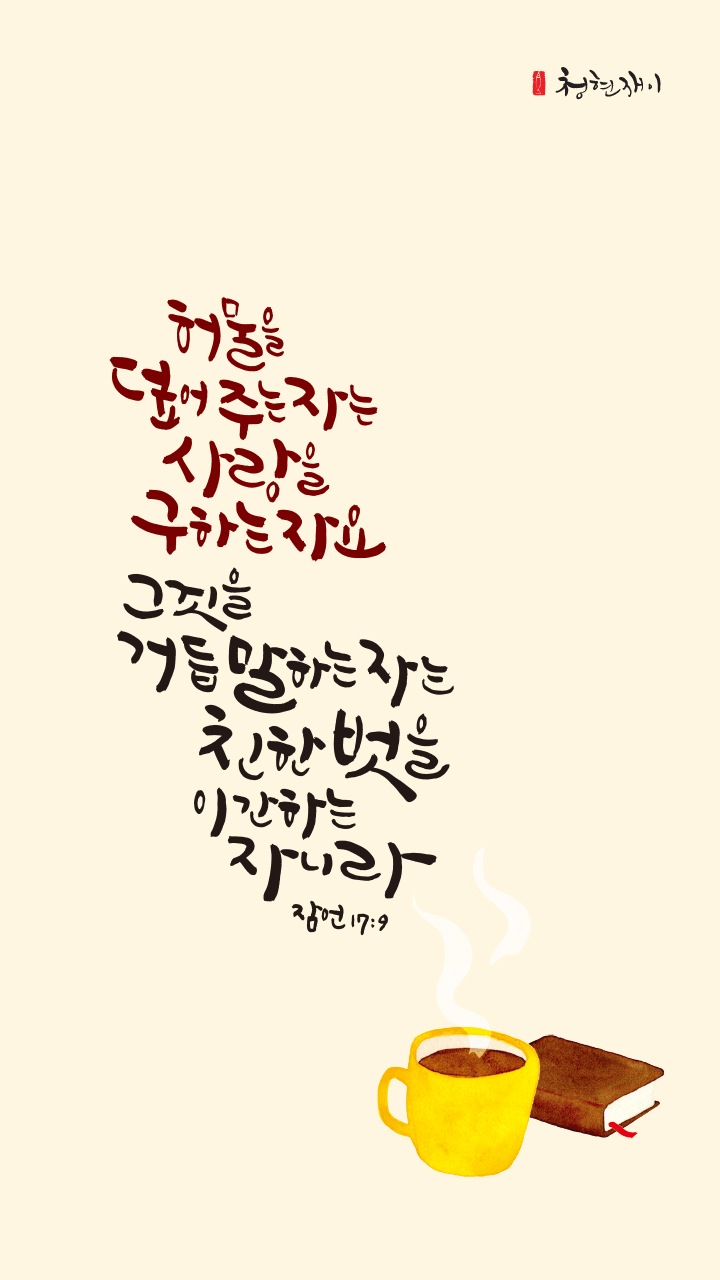 청현재이
허물을
덮어 주는 자는
사랑을
구하는 자요
그것을
거듭 말하는 자는
친한 벗을
이간하는
자니라
잠언 17:9